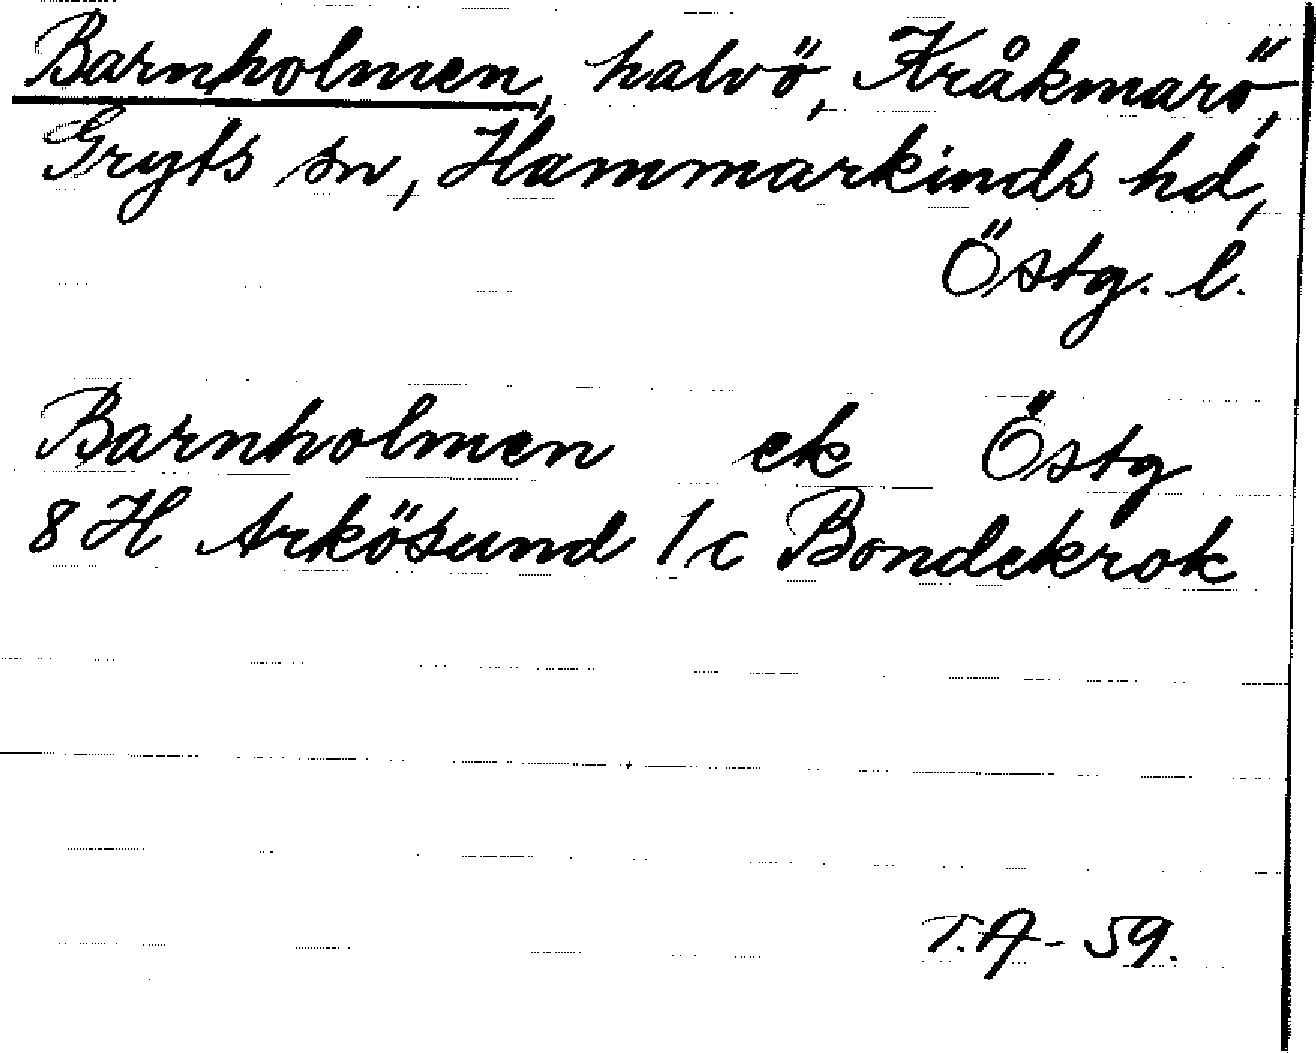 Barnholmen, halvö, Kråkmarö,
Gryts sn, Hammarkinds hd,
Östg. l.
Barnholmen ek Östg
8 H Arkösund 1 c Bondekrok
T.A - 59.